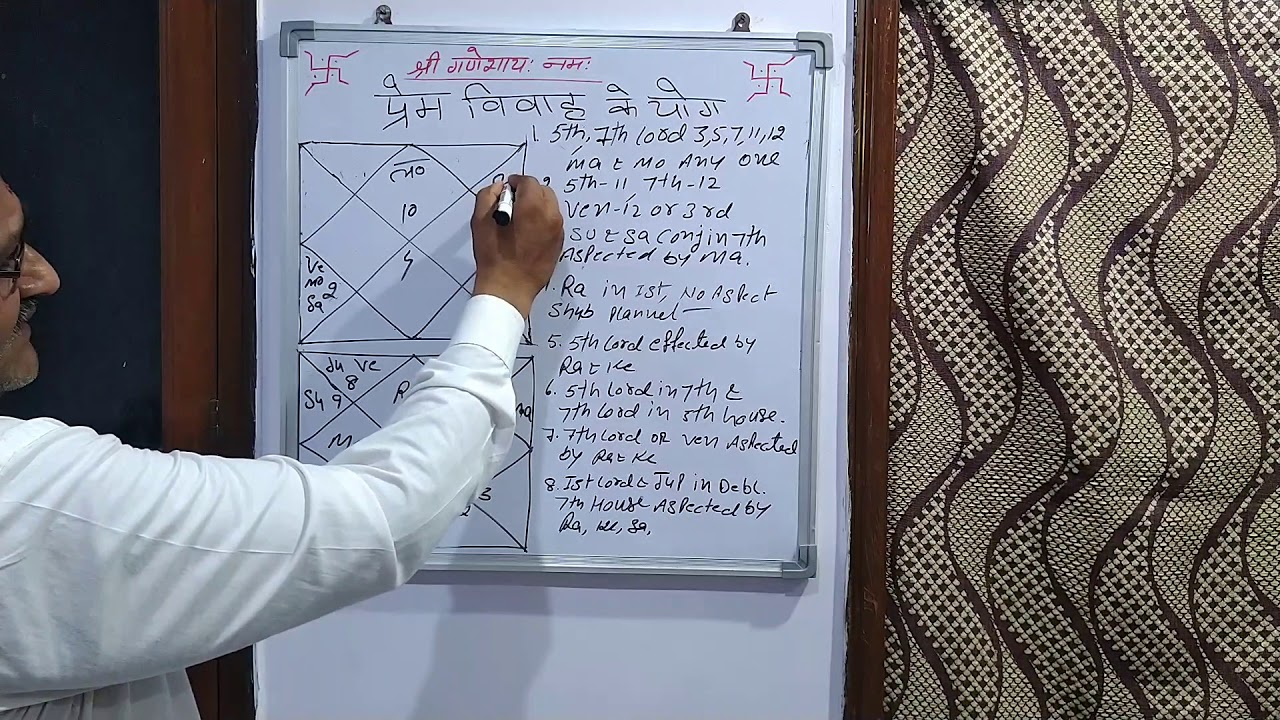 श्री गणेशाय: नमः
प्रेम विवाह के योग
1. 5th, 7th Lord 3,5,7,11,12
Ma & Mo Any one
5th-11 7th-12
Ven-12 or 3rd
SU & Sa Conj in 7th
Aspected by Ma.
Ra in Ist, No Aspect
Shub Plannel —
5. 5th Lord effected by
Ra & Ke
6. 5th Lord in 7th &
7th Lord in 5th house.
7. 7th Lord OR Ven Aspected
by Ra & Ke
8. Ist Lord & Jup in Debl.
7th House Aspected by
Ra, Ke, Sa,
ल०
10
Ve
Mo 2
Sa
Ju Ve
8
Su 9
M
R
3
2